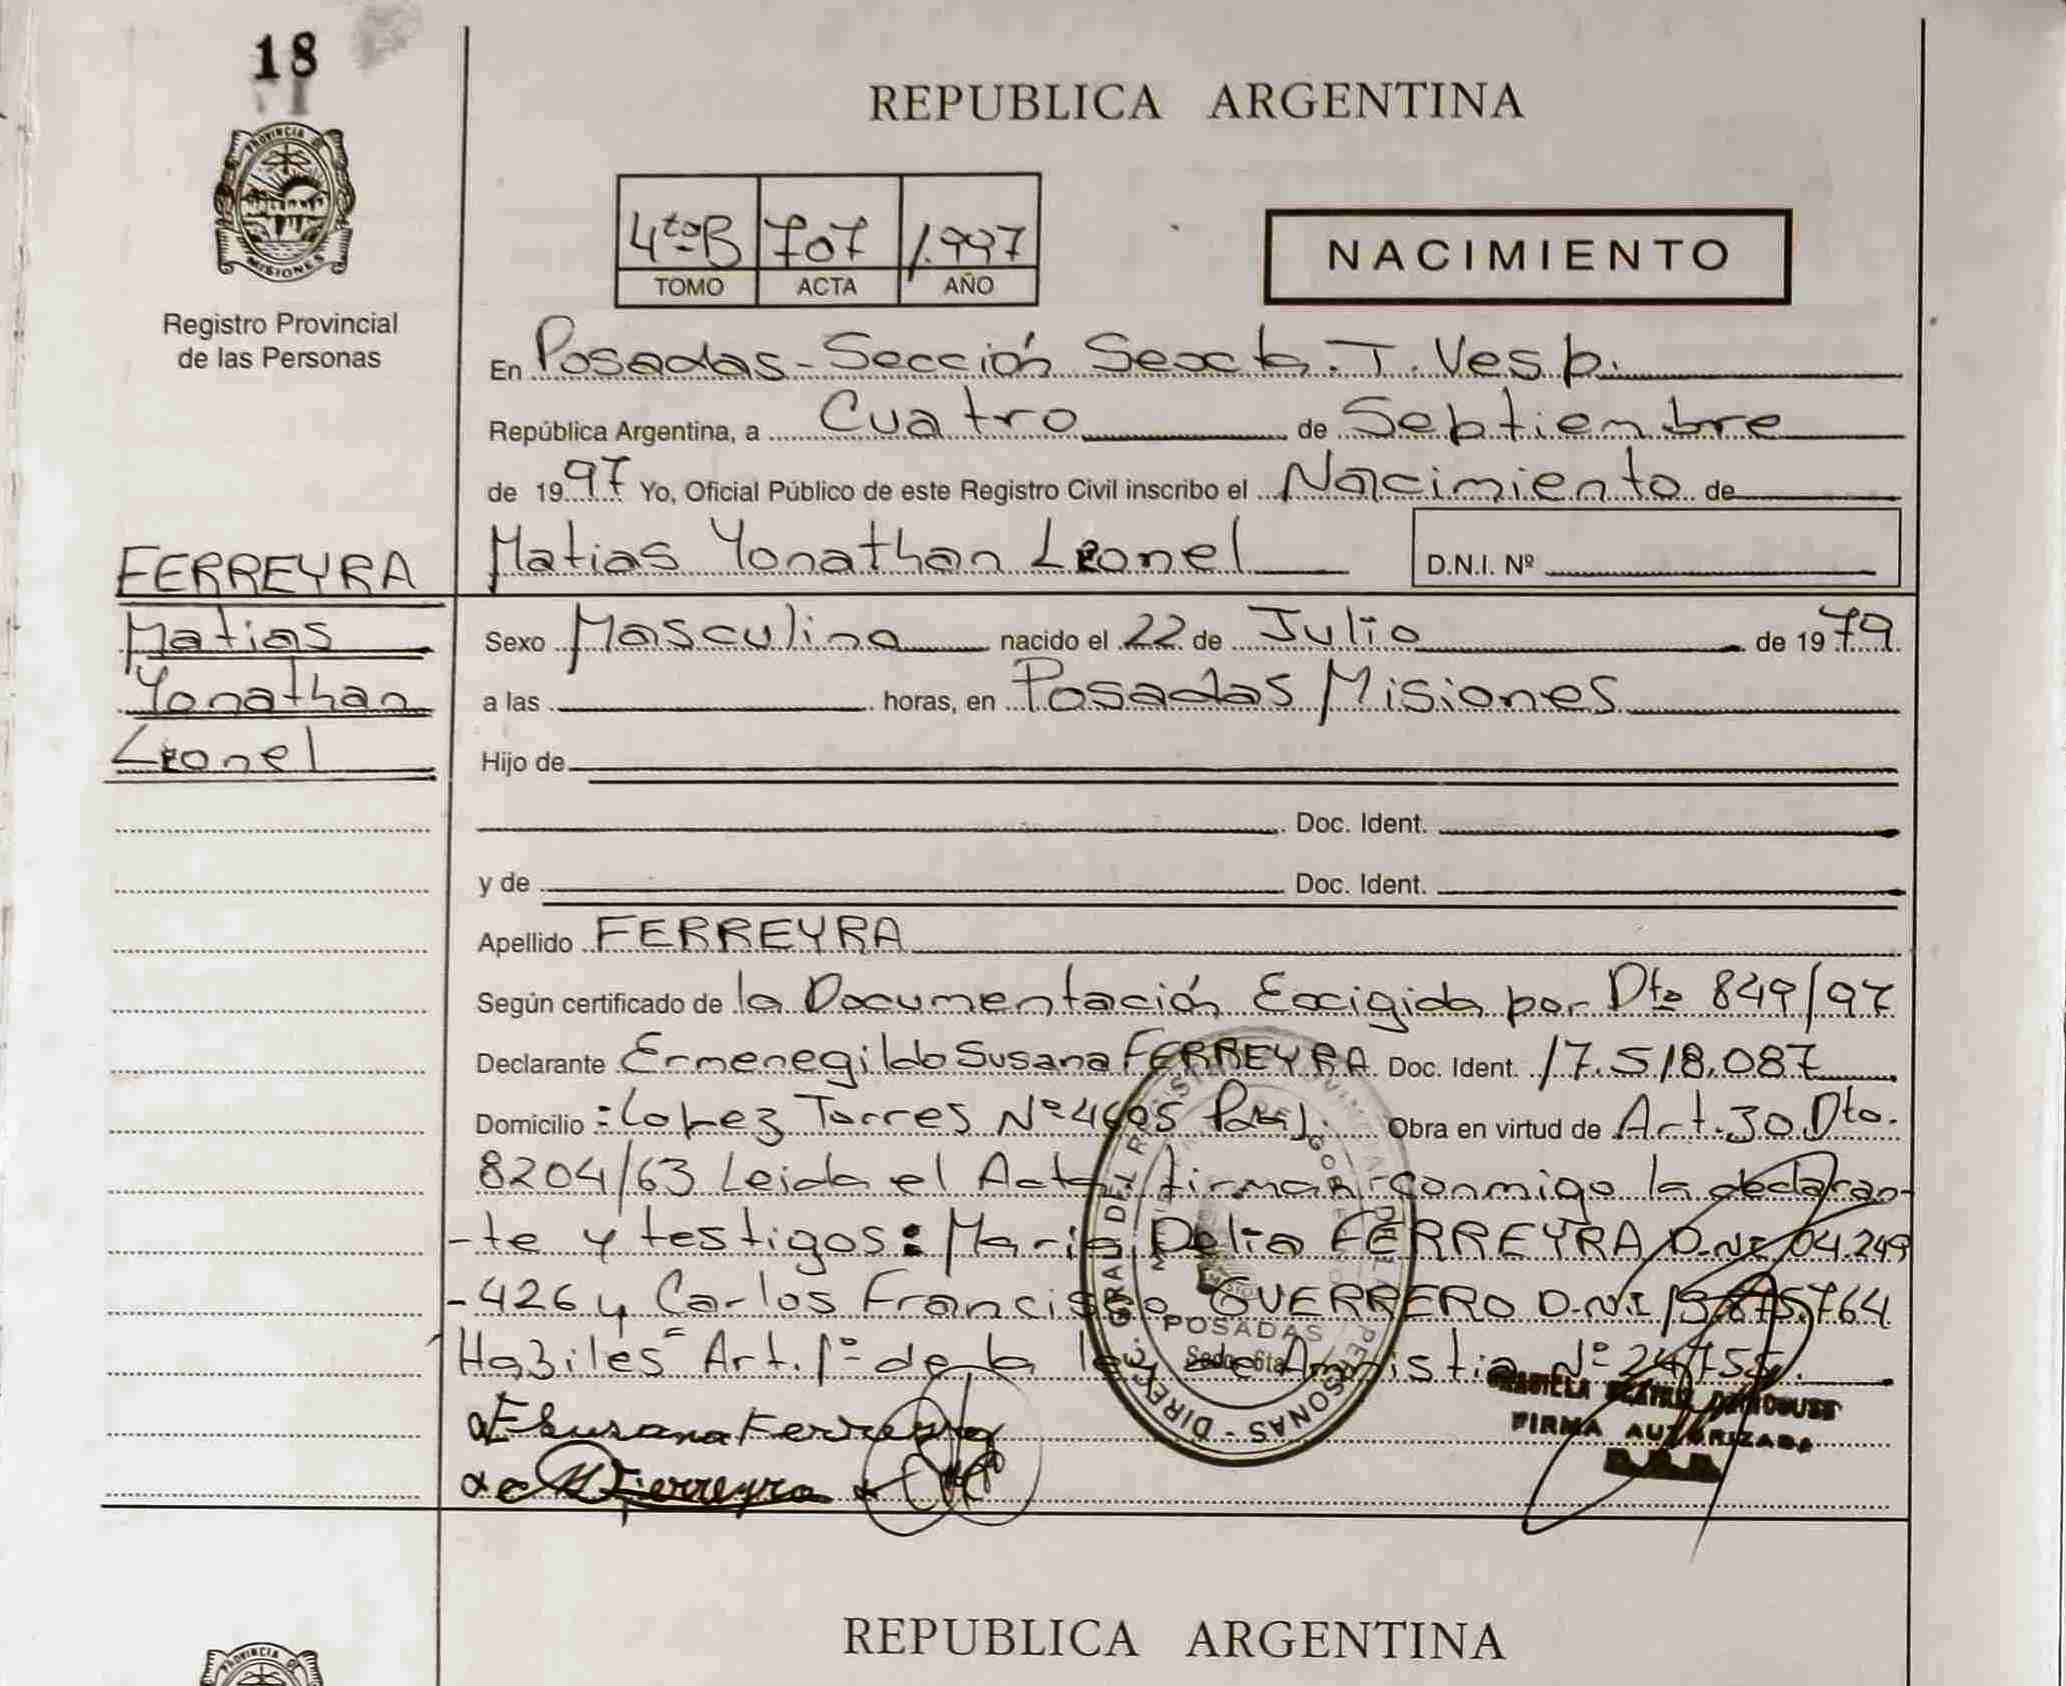 18
PROVINCIA DE
MISIONES
Registro Provincial
de las Personas
FERREYRA
Matias
Yonathan
Leonel
REPUBLICA ARGENTINA
4to B 707 1.997
TOMO ACTA AÑO
NACIMIENTO
En Posadas - Sección Sexta. T. Vesp.
República Argentina, a Cuatro de Septiembre
de 1997 Yo, Oficial Público de este Registro Civil inscribo el Nacimiento de
Matias Yonathan Leonel D.N.I. Nº
Sexo Masculino nacido el 22 de Julio de 1979
a las horas, en Posadas Misiones
Hijo de
Doc. Ident.
y de Doc. Ident.
Apellido FERREYRA
Según certificado de la Documentación Excigida por Dto 849/97
Declarante Ermenegildo Susana FERREYRA Doc. Ident. 17.518.087
Domicilio : Lopez Torres Nº Obra en virtud de Art. 30 Dto.
8204/63 Leida el Acta firman conmigo la declaran-
-te y testigos: Maria Delia FERREYRA D.N.I 04.249
-426 y Carlos Francisco GUERRERO D.N.I
Habiles Art. 1º de la ley de Amnistia Nº 24755.
E Susana Ferreyra
M Ferreyra
POSADAS
Secc. 6ta
FIRMA AUTORIZADA
REPUBLICA ARGENTINA
PROVINCIA